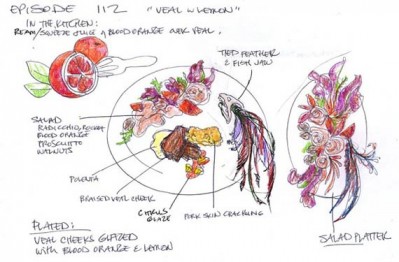 EPISODE 112 "VEAL W LEMON"
IN THE KITCHEN:
READY/SQUEEZE JUICE of BLOOD ORANGE OVER VEAL.
TIED FEATHER
& FISH JAW
SALAD
RADICCHIO, ROCKET
BLOOD ORANGE
PROSCIUTTO
WALNUTS
POLENTA
BRAISED VEAL CHEEK
CITRUS
GLAZE
PORK SKIN CRACKLING
PLATED:
VEAL CHEEKS GLAZED
WITH BLOOD ORANGE & LEMON
SALAD PLATTER